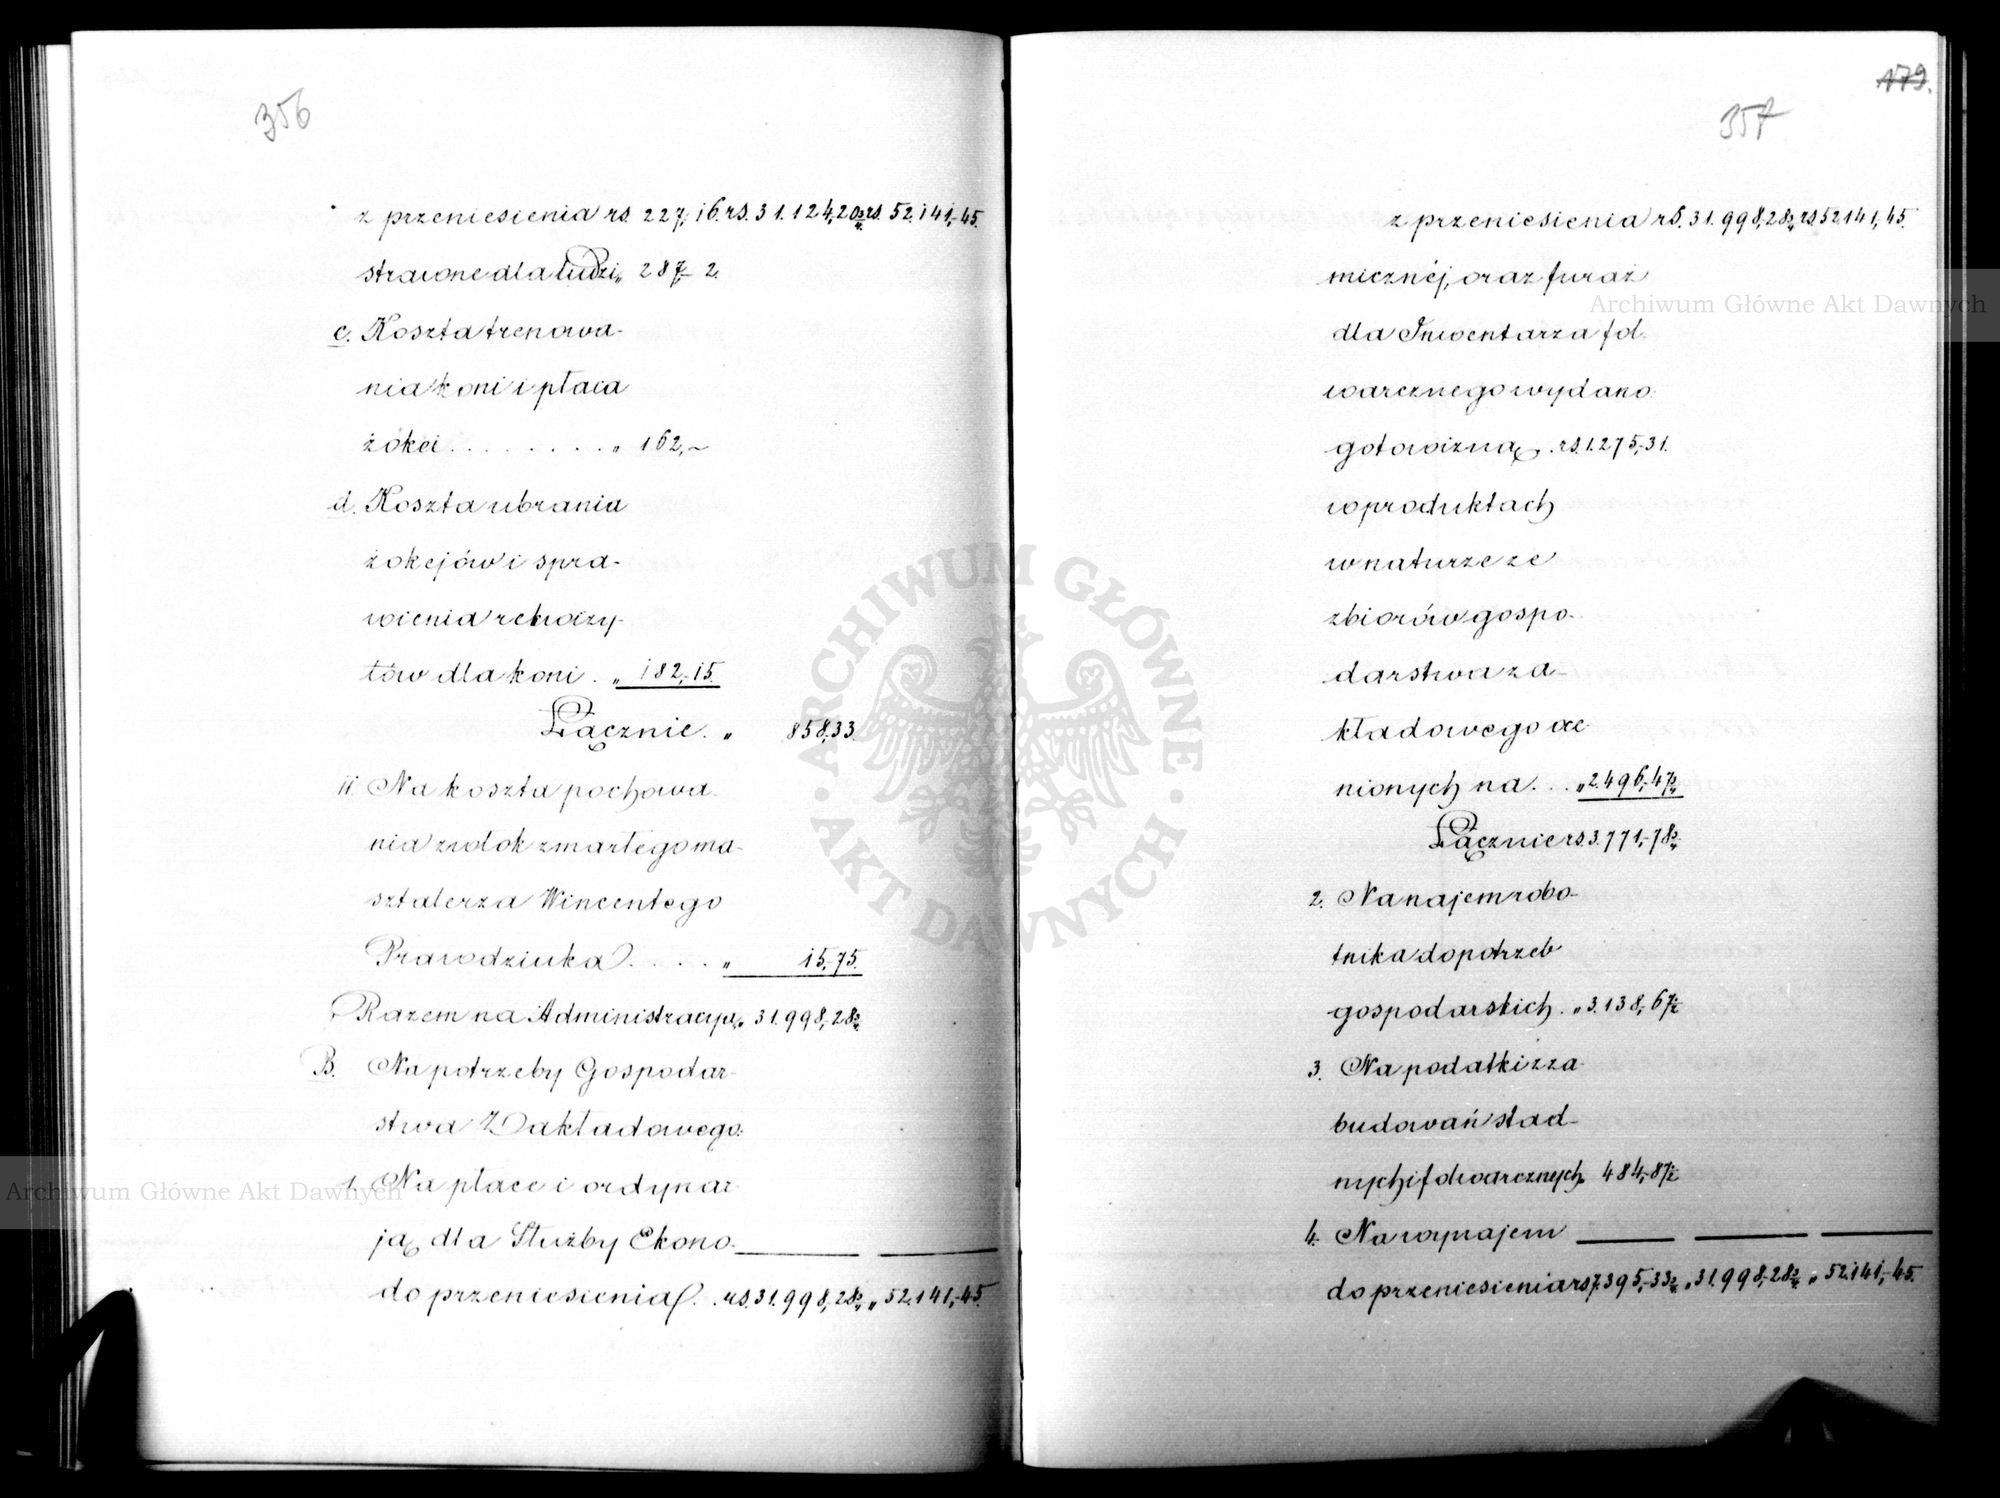 356
z przeniesienia rs. 227,-16. rs. 31.124,20¾ rs. 52.141,-45.
strawne dla ludzi „ 287-2.
c. Koszta trenowa-
nia koni i płaca
żokei . . . . . . . . „ 162,~
d. Koszta ubrania
żokejów i spra-
wienia rekwizy-
tów dla koni . „ 182,-15.
Łącznie . „ 858,33.
11 Na koszta pochowa-
nia zwłok zmarłego ma-
sztalerza Wincentego
Prawodziuka . . . . „ 15,-75.
Razem na Administracyą „ 31.998,-28¾
B. Na potrzeby Gospodar-
stwa Zakładowego.
1. Na płace i ordynar-
ją dla Służby Ekono-
do przeniesienia . . rs. 31.998,-28¾ „ 52.141,-45.
179.
357
z przeniesienia rs. 31.998,-28¾ rs 52141,-45.
micznéj, oraz furaż
dla Inwentarza fol-
warcznego wydano:
gotowizną . rs. 1.275,-31.
w produktach
w naturze ze
zbiorów gospo-
darstwa za-
kładowego oce-
nionych na . . . „ 2.496,-47¾
Łącznie rs. 3.771,-78¾
2. Na najem robo-
tnika do potrzeb
gospodarskich . „ 3.138,-67½
3. Na podatki z za-
budowań stad-
nych i folwarcznych „ 484,-87½
4. Na wynajem
do przeniesienia rs 7.395,-33¾ „ 31.998,-28¾ „ 52.141,-45.
ARCHIWUM GŁÓWNE AKT DAWNYCH
Archiwum Główne Akt Dawnych
Archiwum Główne Akt Dawnych